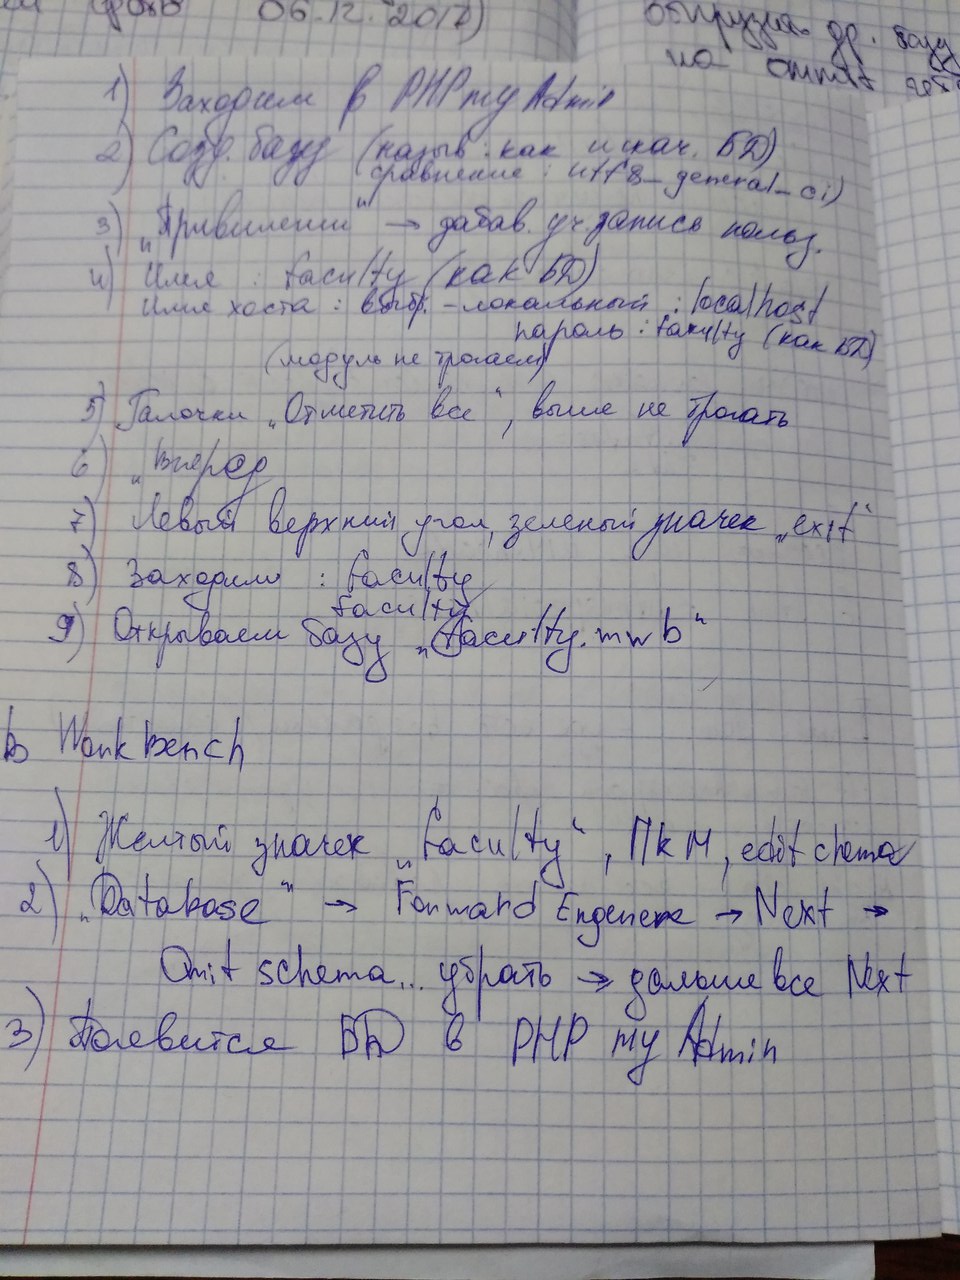 06.12.2017)
др. базу
на
1) Заходим в PHPmyAdmin
2) Созд. базу (назыв: как и скач. БД)
сравнение: utf8_general_ci)
3) „Привилегии“ → добав. уч. запись польз.
4) Имя : faculty (как БД)
Имя хоста : выбр. - локальный : localhost
пароль : faculty (как БД)
(модуль не трогаем)
5) Галочки „Отметить все“, выше не трогать
6) „Вперед
7) Левый верхний угол, зеленый значек „exit“
8) Заходим : faculty
faculty
9) Открываем базу „faculty.mwb“
В Workbench
1) Желтый значек „faculty“, ПКМ, edit chema
2) „Database“ → Forward Engenere → Next →
Omit schema... убрать → дальше все Next
3) Появится БД в PHP my Admin